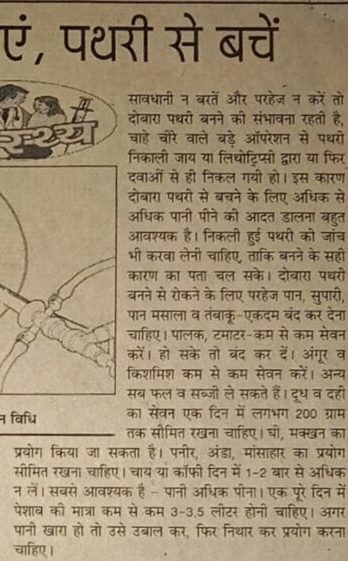 एं, पथरी से बचें
स्वास्थ्य
सावधानी न बरतें और परहेज न करें तो
दोबारा पथरी बनने की संभावना रहती है,
चाहे चीरे वाले बड़े ऑपरेशन से पथरी
निकाली जाय या लिथोट्रिप्सी द्वारा या फिर
दवाओं से ही निकल गयी हो। इस कारण
दोबारा पथरी से बचने के लिए अधिक से
अधिक पानी पीने की आदत डालना बहुत
आवश्यक है। निकली हुई पथरी की जांच
भी करवा लेनी चाहिए, ताकि बनने के सही
कारण का पता चल सके। दोबारा पथरी
बनने से रोकने के लिए परहेज पान, सुपारी,
पान मसाला व तंबाकू-एकदम बंद कर देना
चाहिए। पालक, टमाटर-कम से कम सेवन
करें। हो सके तो बंद कर दें। अंगूर व
किशमिश कम से कम सेवन करें। अन्य
सब फल व सब्जी ले सकते हैं। दूध व दही
का सेवन एक दिन में लगभग 200 ग्राम
न विधि
तक सीमित रखना चाहिए। घी, मक्खन का
प्रयोग किया जा सकता है। पनीर, अंडा, मांसाहार का प्रयोग
सीमित रखना चाहिए। चाय या कॉफी दिन में 1-2 बार से अधिक
न लें। सबसे आवश्यक है - पानी अधिक पीना। एक पूरे दिन में
पेशाब की मात्रा कम से कम 3-3.5 लीटर होनी चाहिए। अगर
पानी खारा हो तो उसे उबाल कर, फिर निथार कर प्रयोग करना
चाहिए।